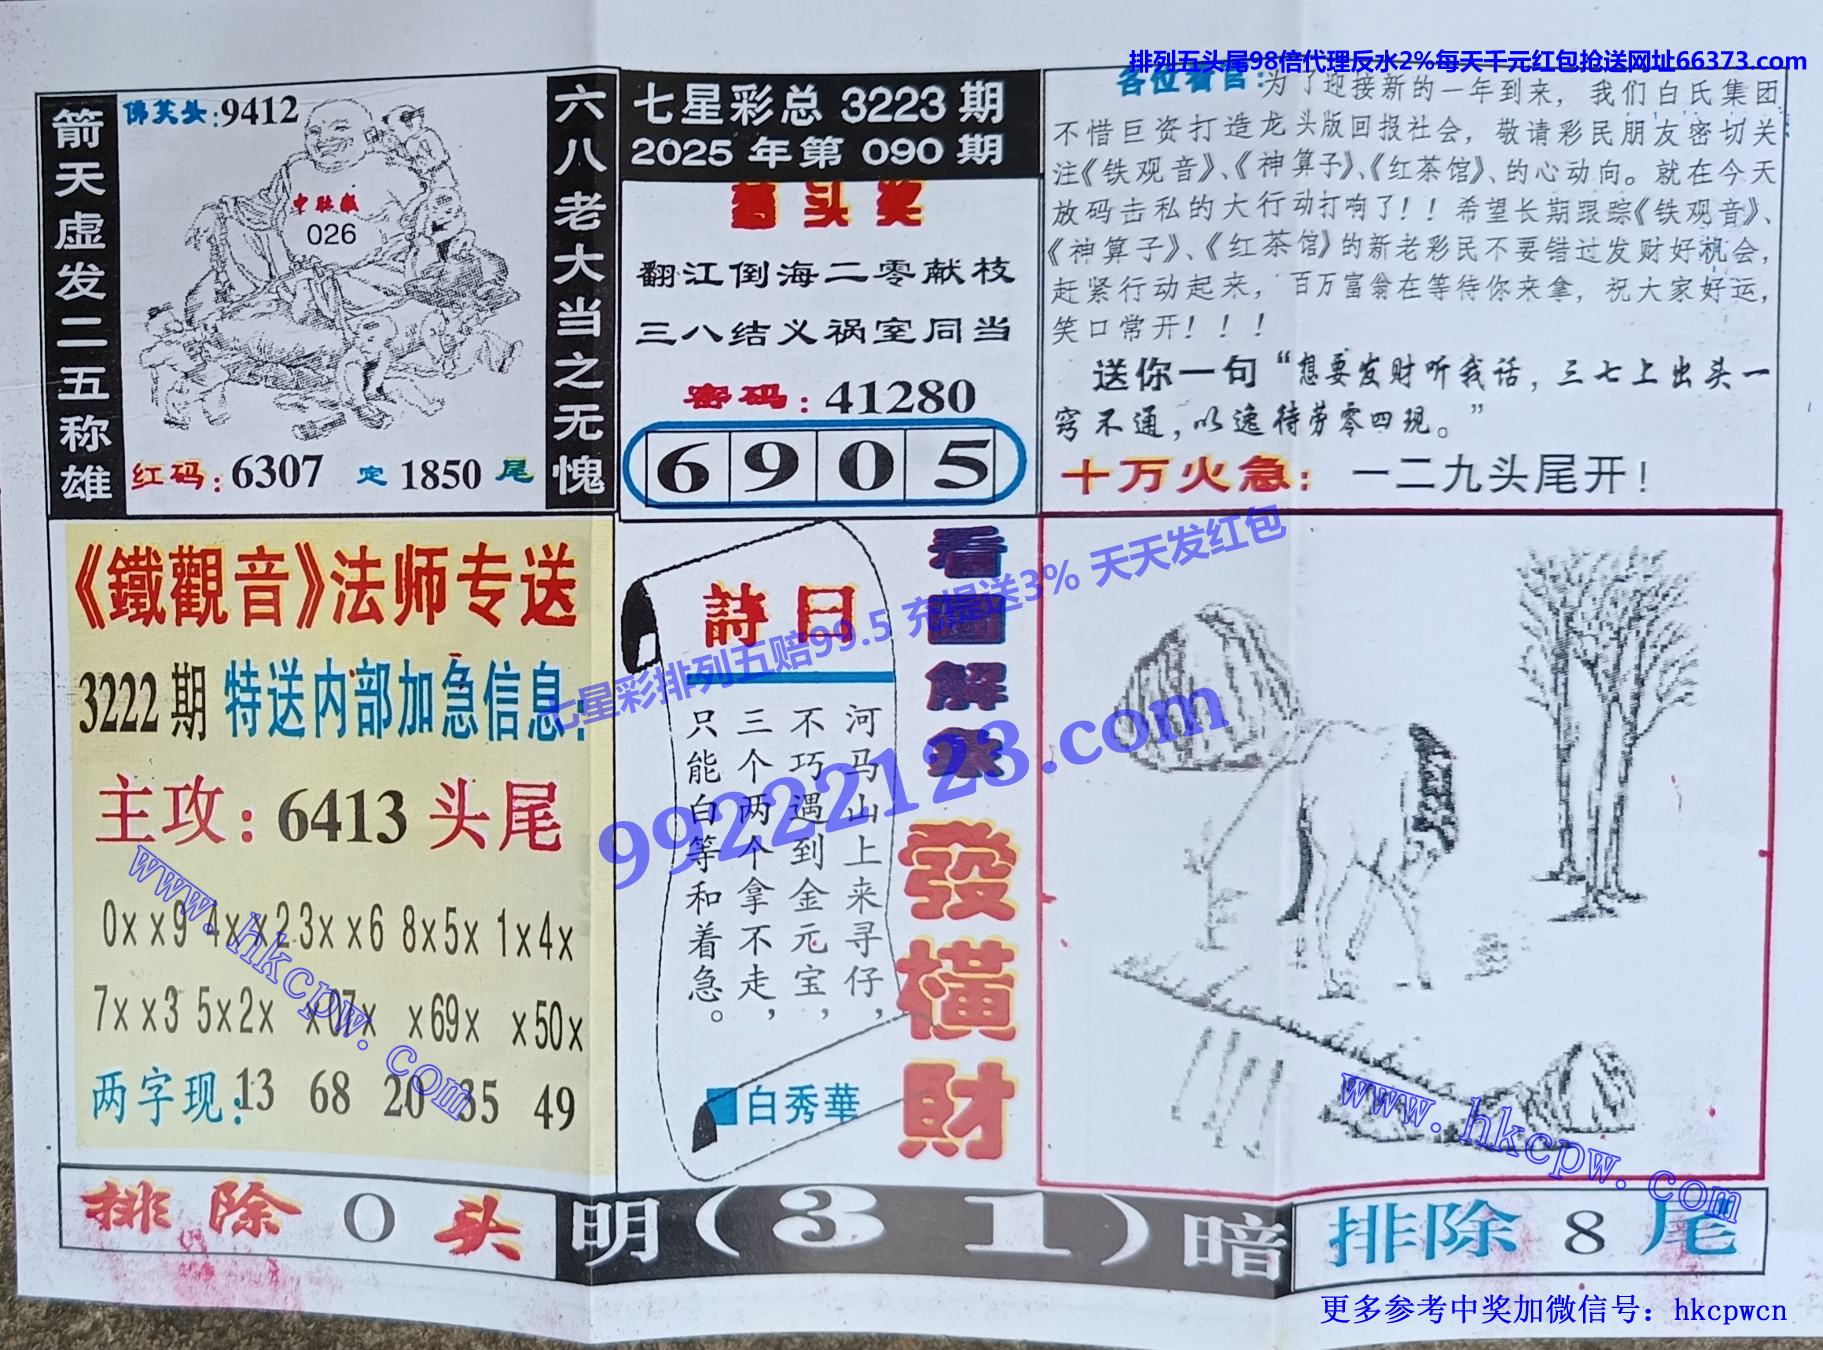 排列五头尾98倍代理反水2%每天千元红包抢送网址66373.com
箭天虚发二五称雄
佛笑头:9412
中肚数
026
红码:6307 定1850尾
六八老大当之无愧
七星彩总3223期
2025年第090期
翻江倒海二零献枝
三八结义祸室同当
密码:41280
6905
各位看官:为了迎接新的一年到来,我们白氏集团
不惜巨资打造龙头版回报社会,敬请彩民朋友密切关
注《铁观音》、《神算子》、《红茶馆》、的心动向。就在今天
放码击私的大行动打响了!!希望长期跟踪《铁观音》、
《神算子》、《红茶馆》的新老彩民不要错过发财好机会,
赶紧行动起来,百万富翁在等待你来拿,祝大家好运,
笑口常开!!!
送你一句“想要发财听我话,三七上出头一
窍不通,以逸待劳零四现。”
十万火急:一二九头尾开!
《鐵觀音》法师专送
3222期 特送内部加急信息:
主攻:6413头尾
0××9 4××2 3××6 8×5× 1×4×
7××3 5×2× ×07× ×69× ×50×
两字现:13 68 20 35 49
詩曰
河马山上来寻仔,
不巧遇到金元宝,
三个两个拿不走,
只能白等和着急。
白秀華
看圖解
發橫財
七星彩排列五赔99.5 充提送3% 天天发红包
99222123.com
www.hkcpw.com
www.hkcpw.com
排除0头
明(31)暗
排除8尾
更多参考中奖加微信号:hkcpwcn